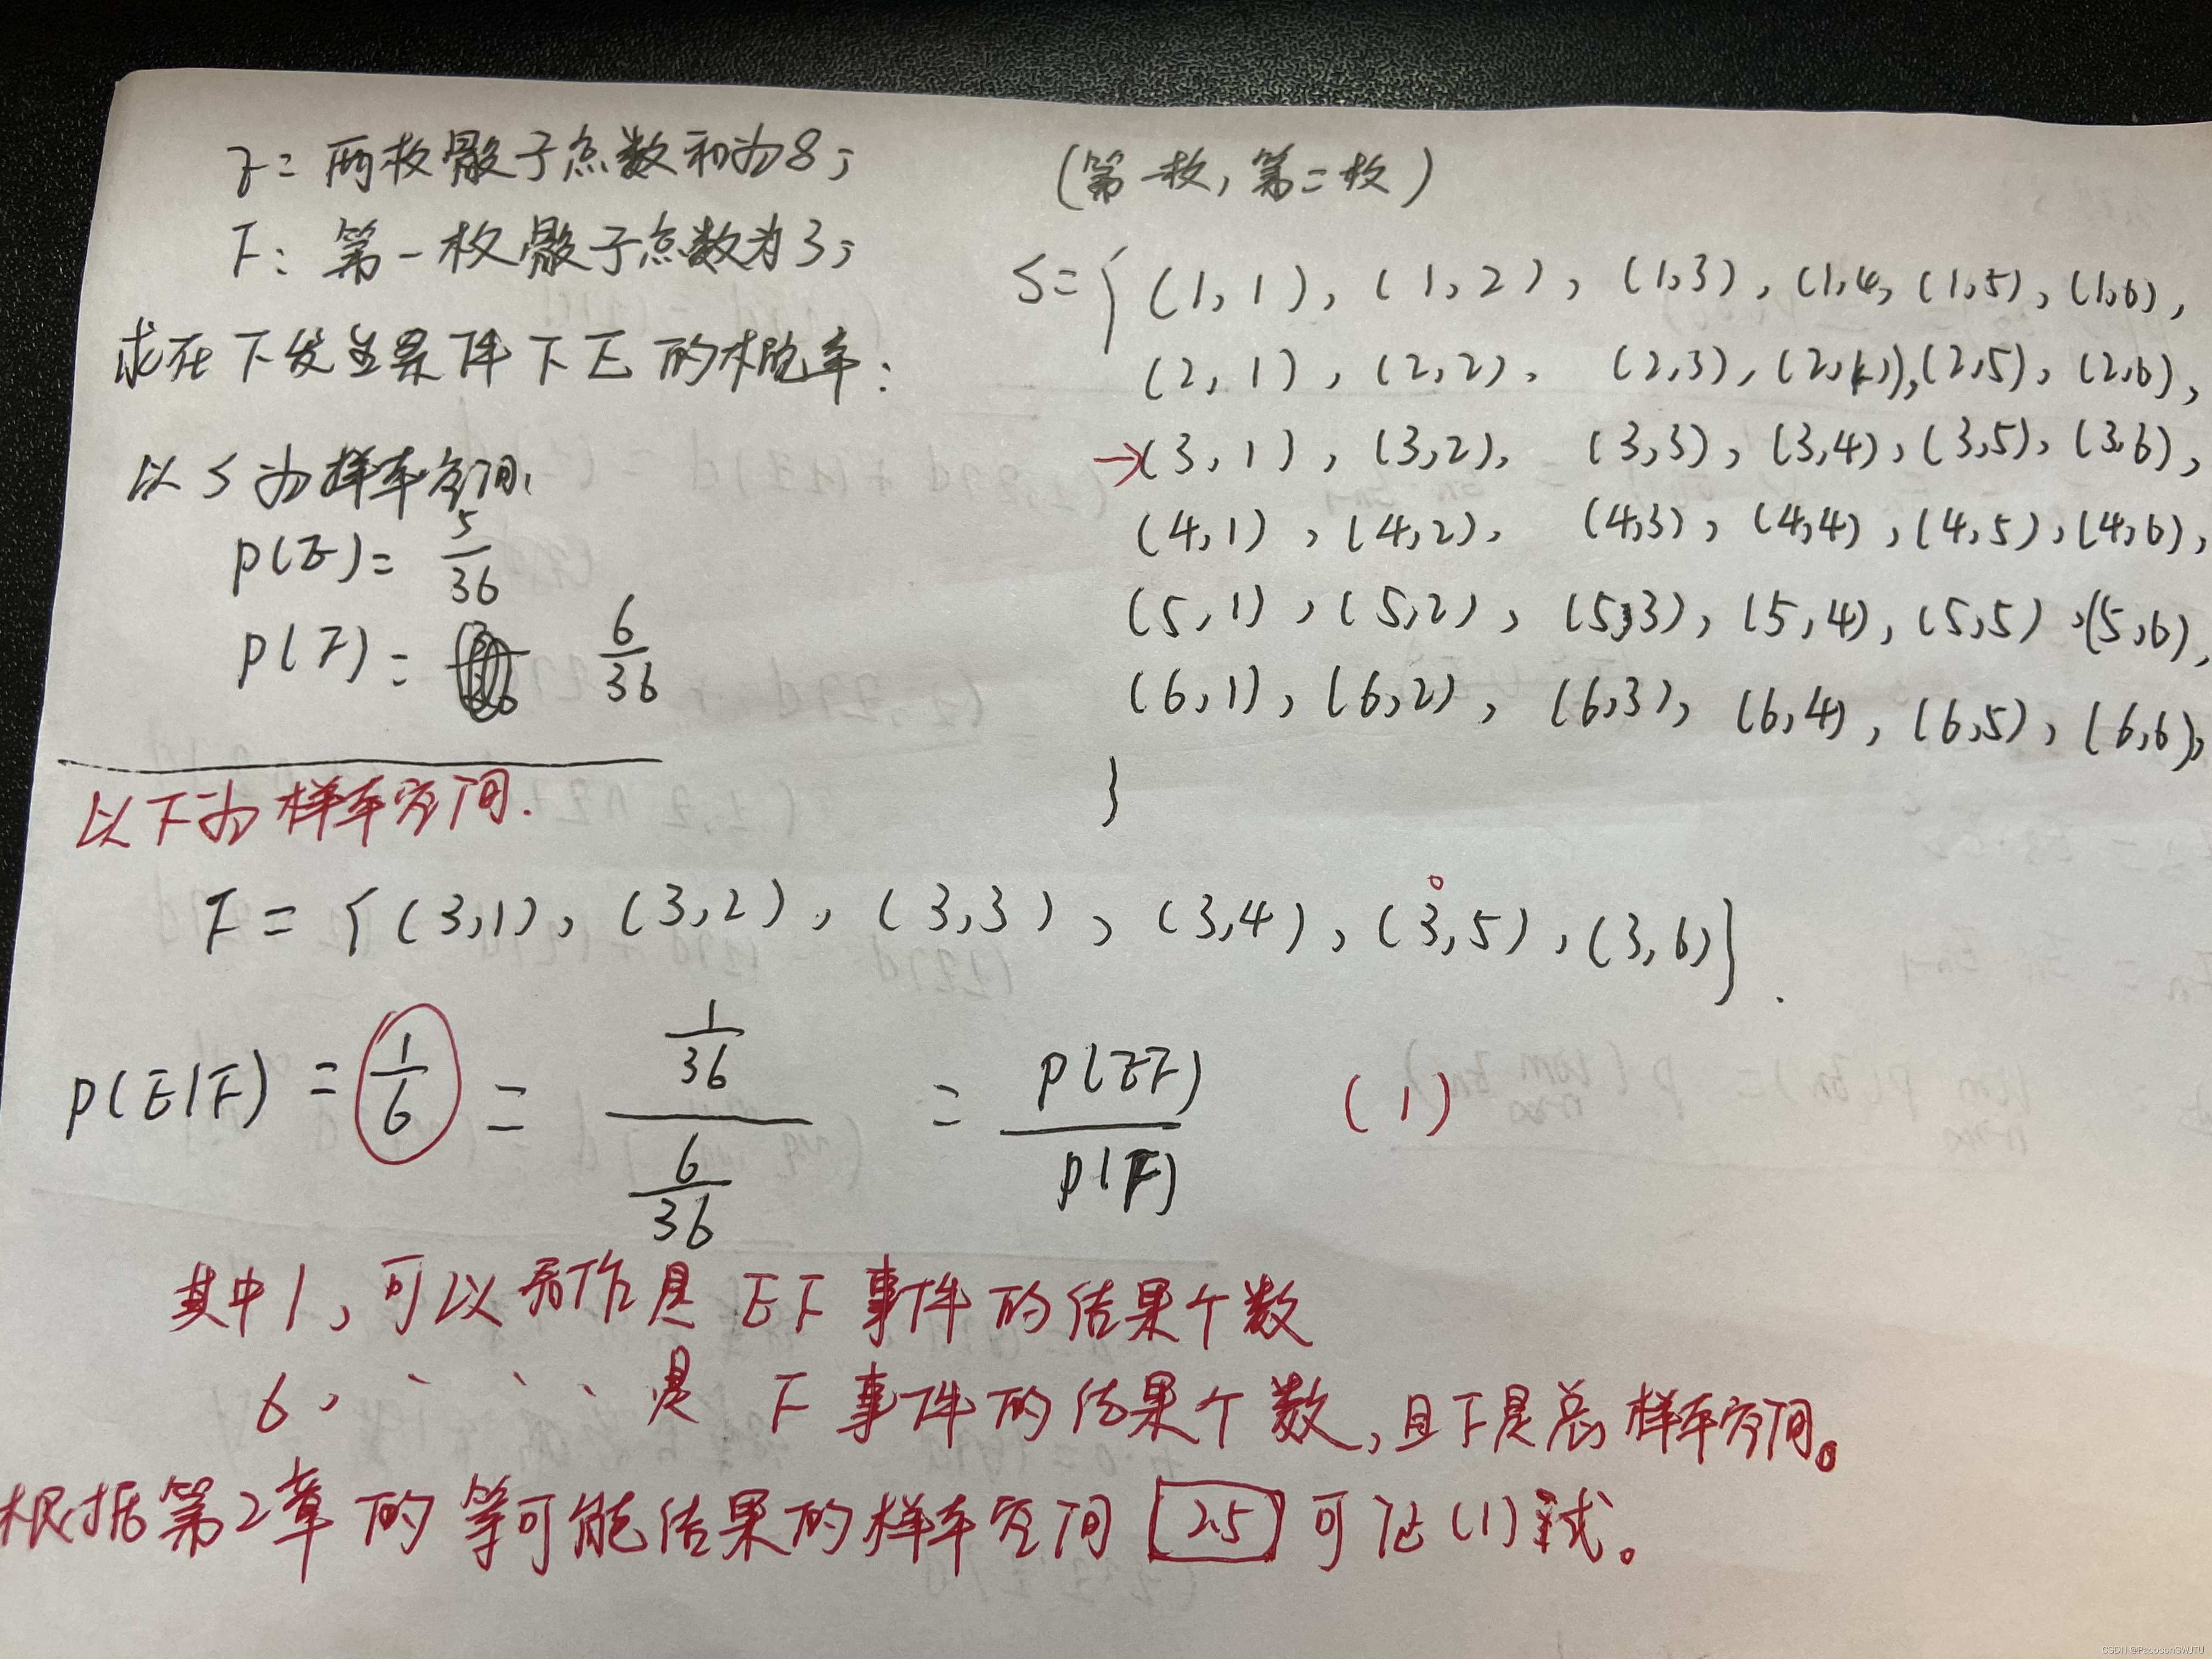 E = 两枚骰子点数和为8;
F: 第一枚骰子点数为3;
求在F发生条件下E的概率:
以S为样本空间.
P(E) = 5/36
P(F) = 6/36
(第一枚, 第二枚)
S = { (1,1), (1,2), (1,3), (1,4, (1,5), (1,6),
(2,1), (2,2), (2,3), (2,4), (2,5), (2,6),
→(3,1), (3,2), (3,3), (3,4), (3,5), (3,6),
(4,1), (4,2), (4,3), (4,4), (4,5), (4,6),
(5,1), (5,2), (5,3), (5,4), (5,5), (5,6),
(6,1), (6,2), (6,3), (6,4), (6,5), (6,6),
}
以F为样本空间.
F = { (3,1), (3,2), (3,3), (3,4), (3,5), (3,6) }.
P(E|F) = 1/6 = (1/36)/(6/36) = P(EF)/P(F) (1)
其中1, 可以看作是 EF 事件的结果个数
6, 、、、是 F 事件的结果个数, 且F是总样本空间。
根据第2章的等可能结果的样本空间 2.5 可证(1)式。
CSDN @PacosonSWJTU